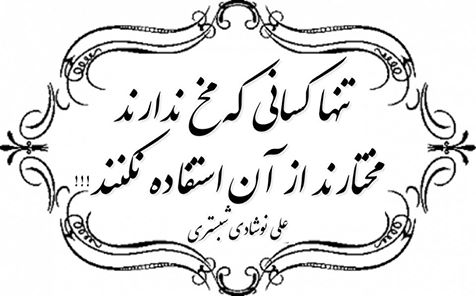 تنها کسانی که مخ ندارند
مختارند از آن استفاده نکنند!!!
علی نوشادی شبستری